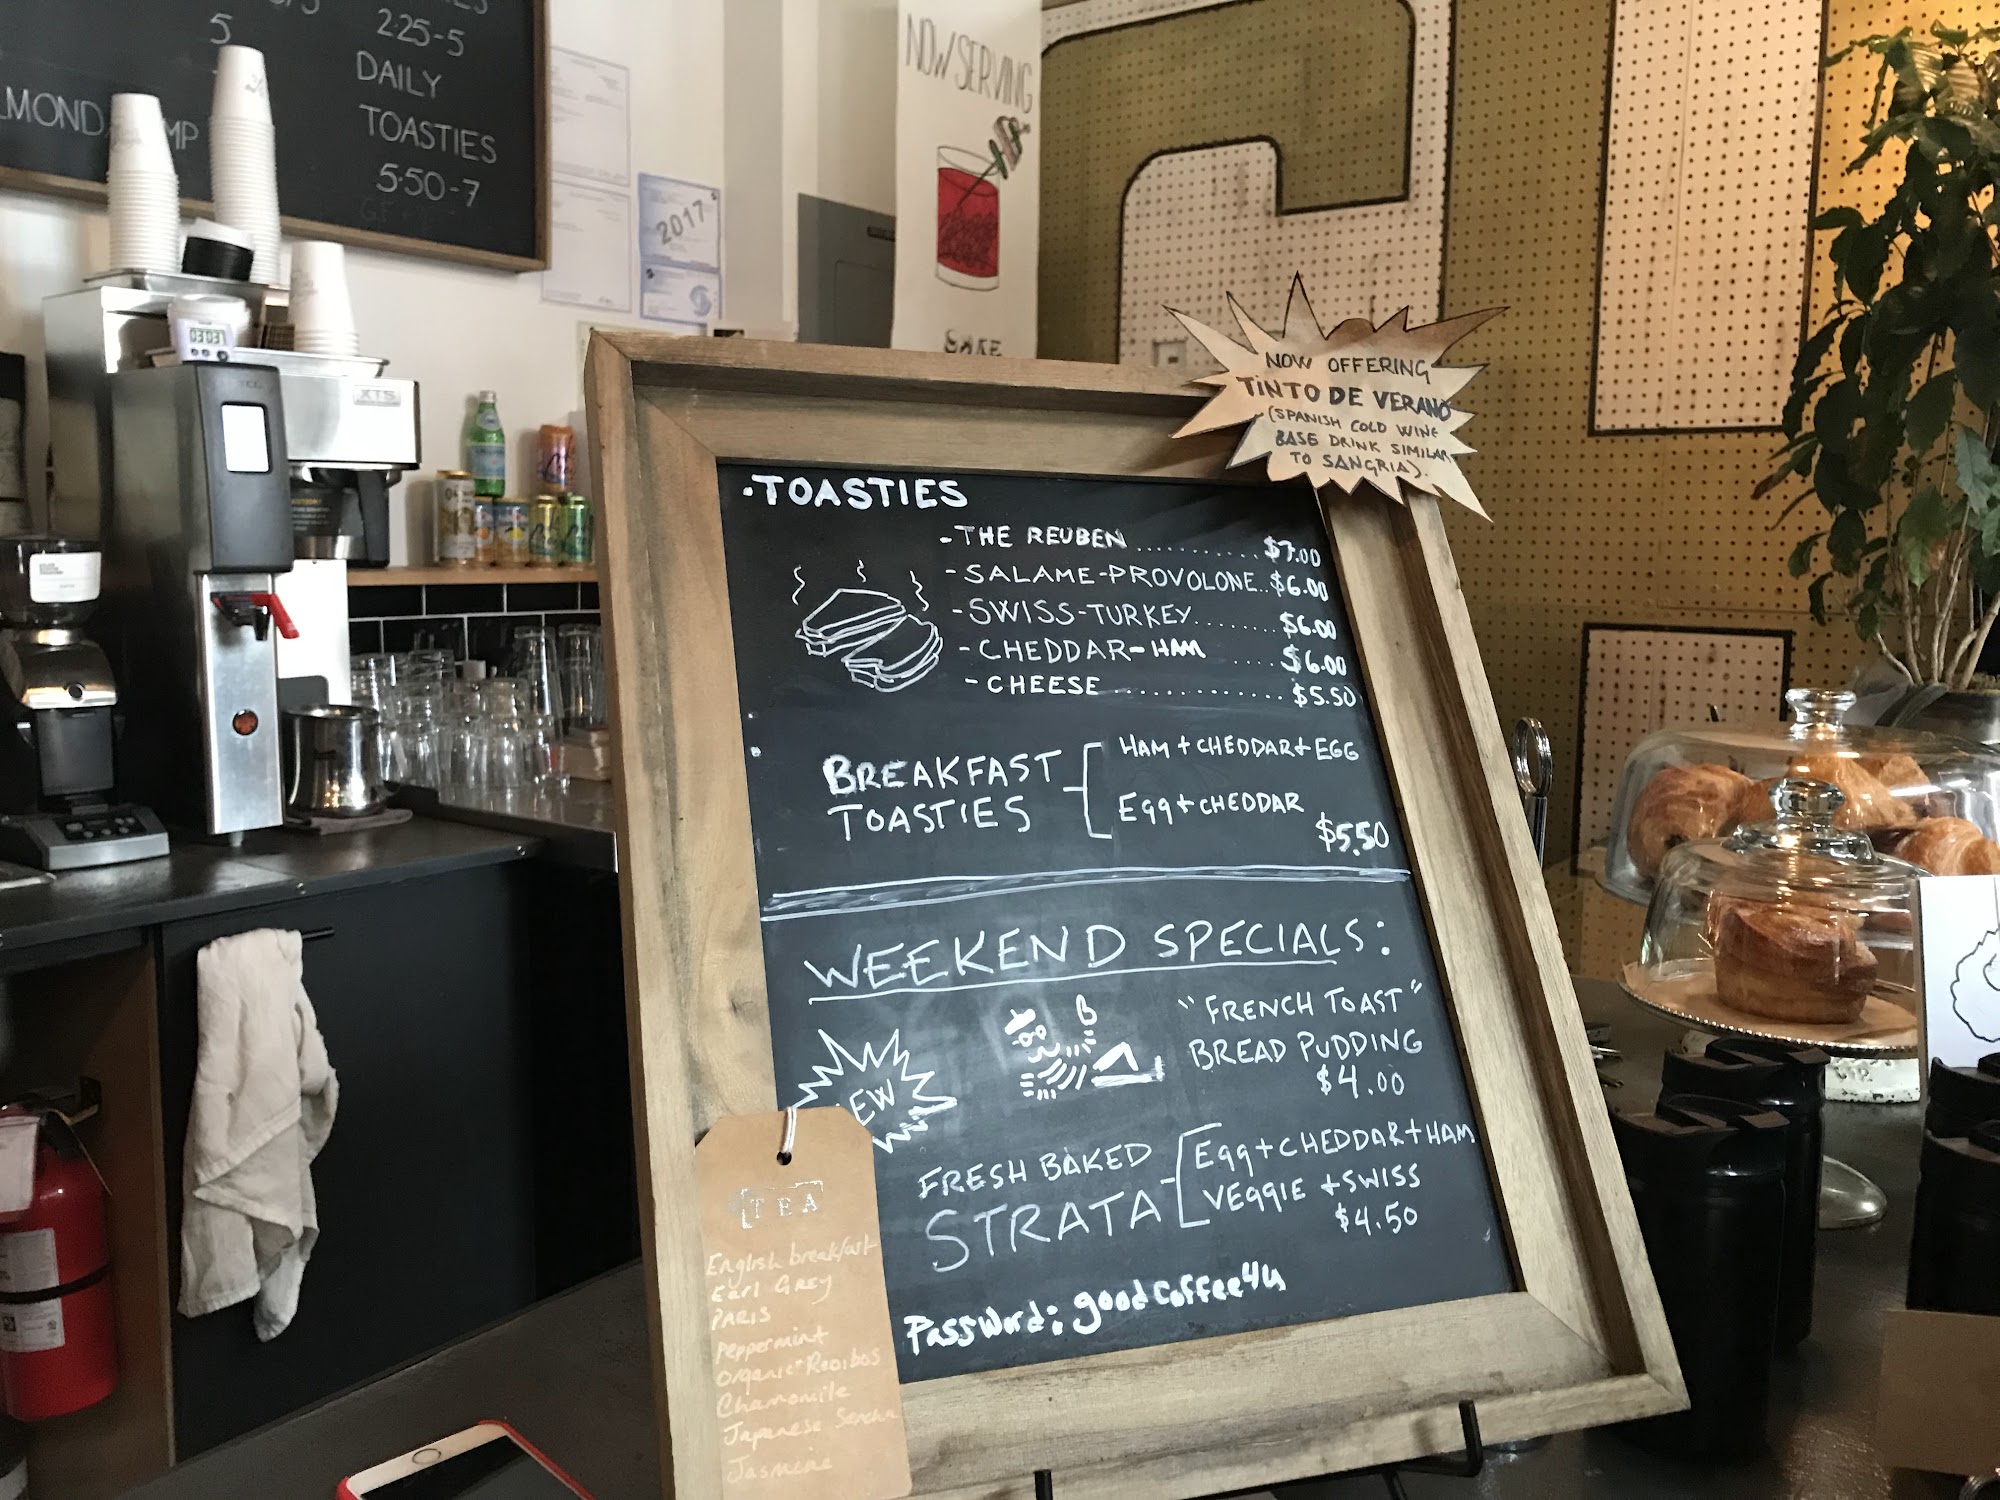 2.25-5
5
DAILY
TOASTIES
5.50-7
2017
NOW SERVING
XTS
NOW OFFERING
TINTO DE VERANO
(SPANISH COLD WINE
BASE DRINK SIMILAR
TO SANGRIA).
·TOASTIES
-THE REUBEN ........... $7.00
-SALAME-PROVOLONE..$6.00
-SWISS-TURKEY........$6.00
-CHEDDAR-HAM ....$6.00
-CHEESE.............$5.50
BREAKFAST
TOASTIES
HAM + CHEDDAR + EGG
Egg + CHEDDAR
$5.50
WEEKEND SPECIALS:
"FRENCH TOAST"
BREAD PUDDING
$4.00
FRESH BAKED
STRATA
Egg + CHEDDAR + HAM
VEggIE + SWISS
$4.50
Password: goodcoffee4u
TEA
English breakfast
Earl Grey
PARIS
Peppermint
Organic Rooibos
Chamomile
Japanese Sencha
Jasmine